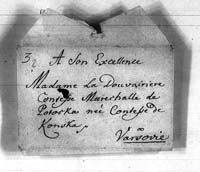 32. A Son Excellence
Madame La Douvairiere
Contesse Marechalle de
Potocka née Contesse de
Konska.
Varsovie